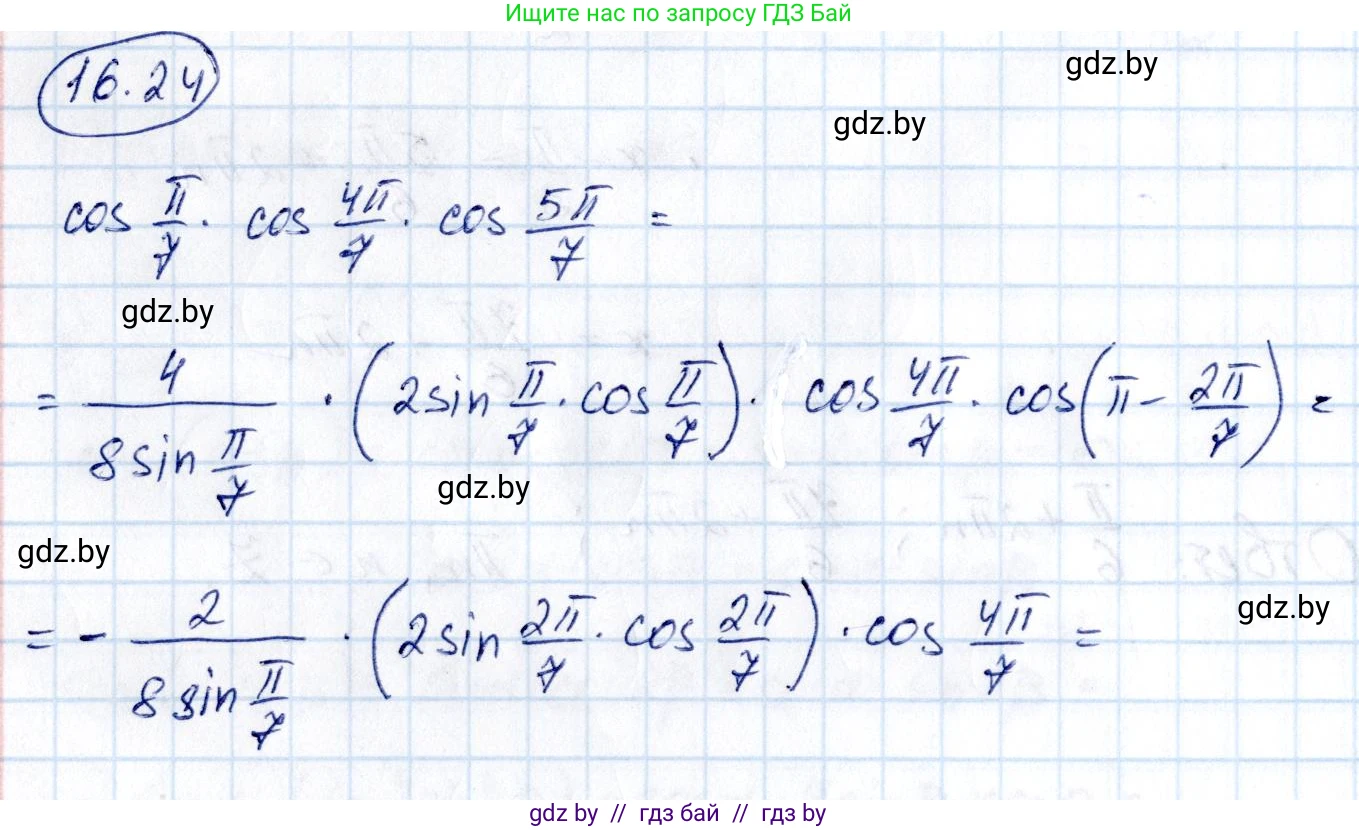 Ищите нас по запросу ГДЗ Бай
16.24
gdz.by
gdz.by
cos π/7 · cos 4π/7 · cos 5π/7 =
gdz.by
= 4/(8 sin π/7) · (2 sin π/7 · cos π/7) · cos 4π/7 · cos(π - 2π/7) =
gdz.by
gdz.by
= - 2/(8 sin π/7) · (2 sin 2π/7 · cos 2π/7) · cos 4π/7 =
gdz.by
gdz by // гдз бай // гдз by